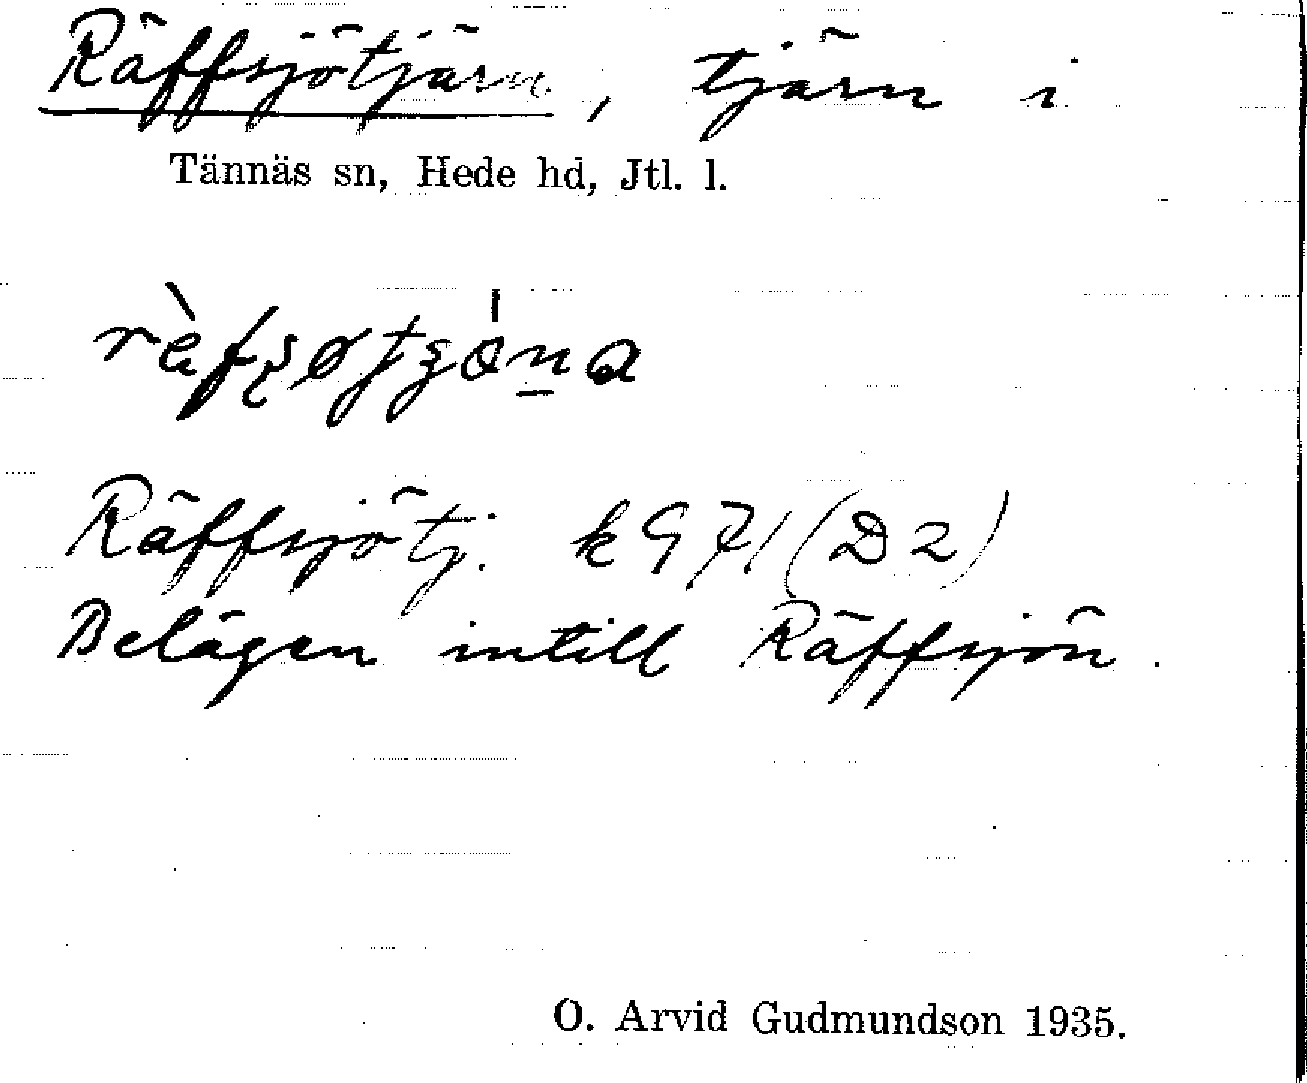 Räffsjötjärn, tjärn i
Tännäs sn, Hede hd, Jtl. l.
Räffsjötj. k G 71 (D 2)
Belägen intill Räffsjön.
O. Arvid Gudmundson 1935.